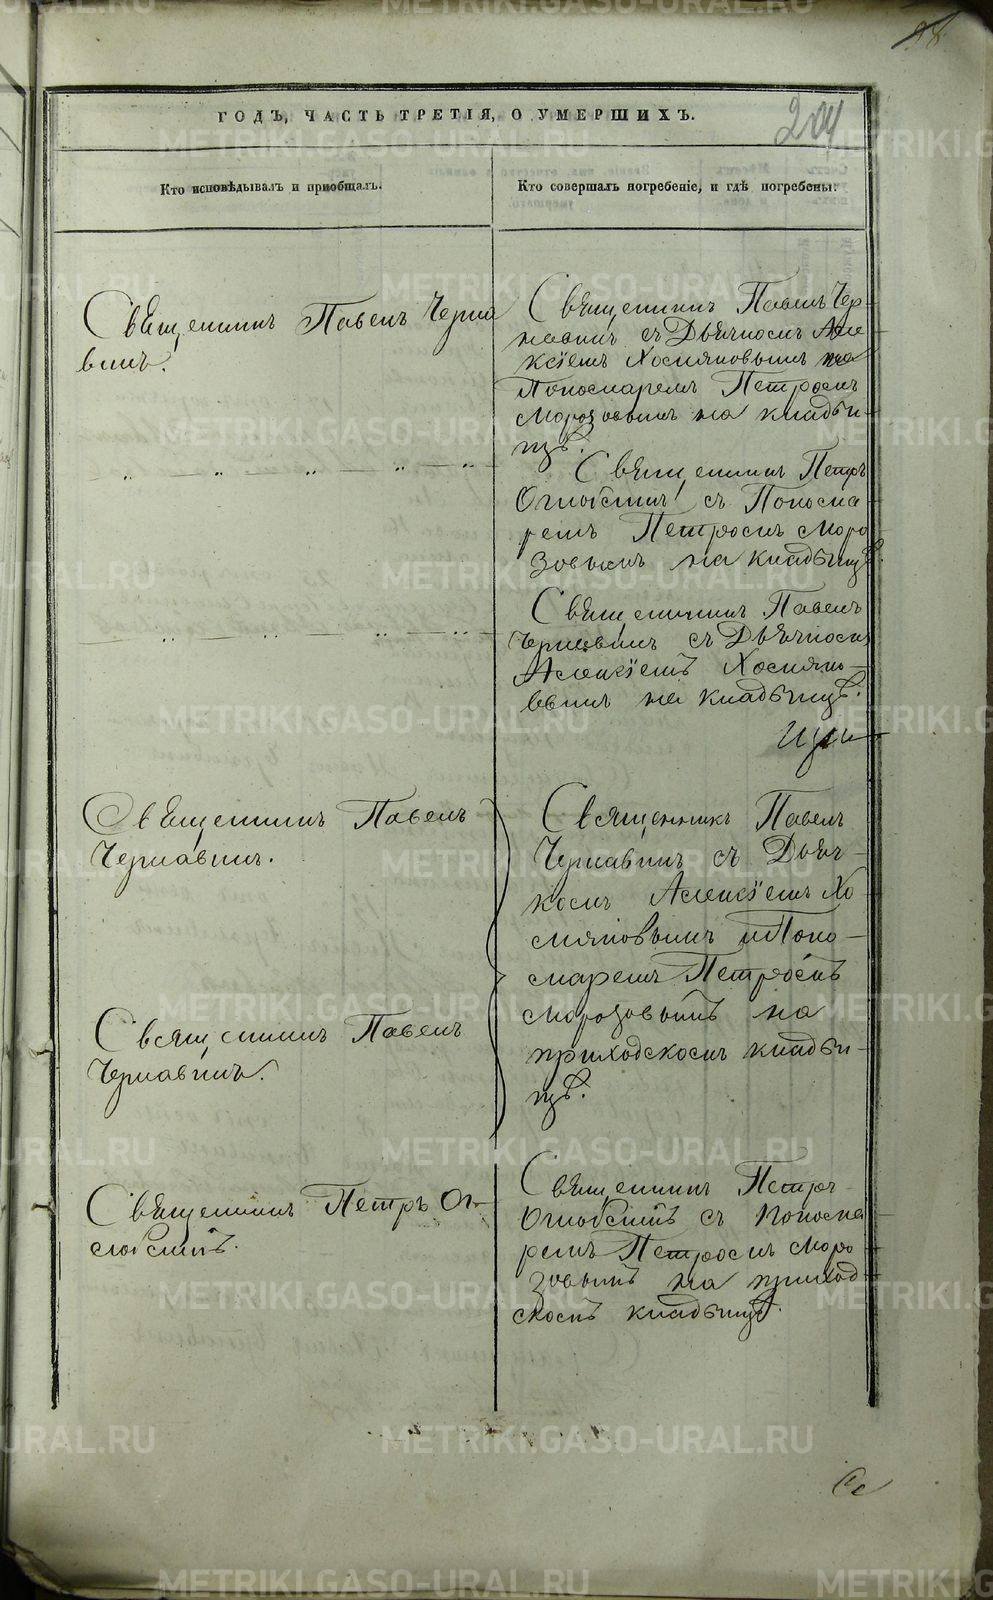 98
ГОДЪ, ЧАСТЬ ТРЕТІЯ, О УМЕРШИХЪ.
204
Кто исповѣдывалъ и пріобщалъ.
Кто совершалъ погребеніе, и гдѣ погребены:
Священникъ Павелъ Черна
винъ.
Священникъ Павелъ Чер-
навинъ съ Дьячкомъ Але
ксіемъ Хомяковымъ
Пономаремъ Петромъ
Морозовымъ на кладби-
щѣ.
Священникъ Петръ
Оглоблинъ съ Понома
ремъ Петромъ Моро
зовымъ на кладбищѣ.
Священникъ Павелъ
Чернавинъ съ Дьячкомъ
Алексіемъ Хомяко-
вымъ на кладбищѣ.
Священникъ Павелъ
Чернавинъ.
Священникъ Павелъ
Чернавинъ.
Священникъ Павелъ
Чернавинъ съ Дьяч-
комъ Алексіемъ Хо
мяковымъ и Поно-
маремъ Петромъ
Морозовымъ на
приходскомъ кладби-
щѣ.
Священникъ Петръ Ог-
лоблинъ.
Священникъ Петръ
Оглоблинъ съ Понома
ремъ Петромъ Моро
зовымъ на приход-
скомъ кладбищѣ.
METRIKI.GASO-URAL.RU